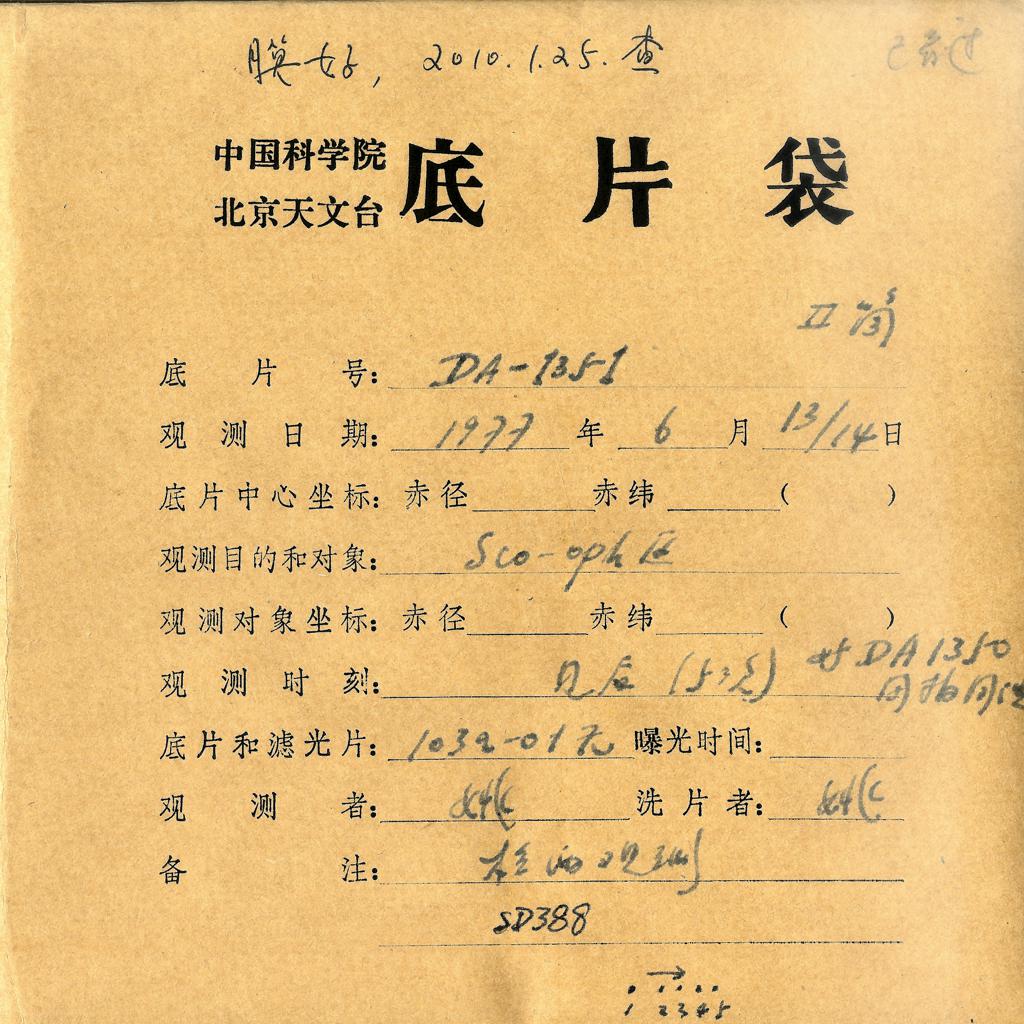 膜好, 2010.1.25.查
已看过
中国科学院
北京天文台
底片袋
II 筒
底片号: DA-1351
观测日期: 1977 年 6 月 13/14 日
底片中心坐标: 赤径 赤纬 ( )
观测目的和对象: Sco-oph 区
观测对象坐标: 赤径 赤纬 ( )
观测时刻: 见后 (5次) DA1350
底片和滤光片: 103a-01 无 曝光时间:
观测者: 洗片者:
备注: 观测
SD388
→
1 2 3 4 5